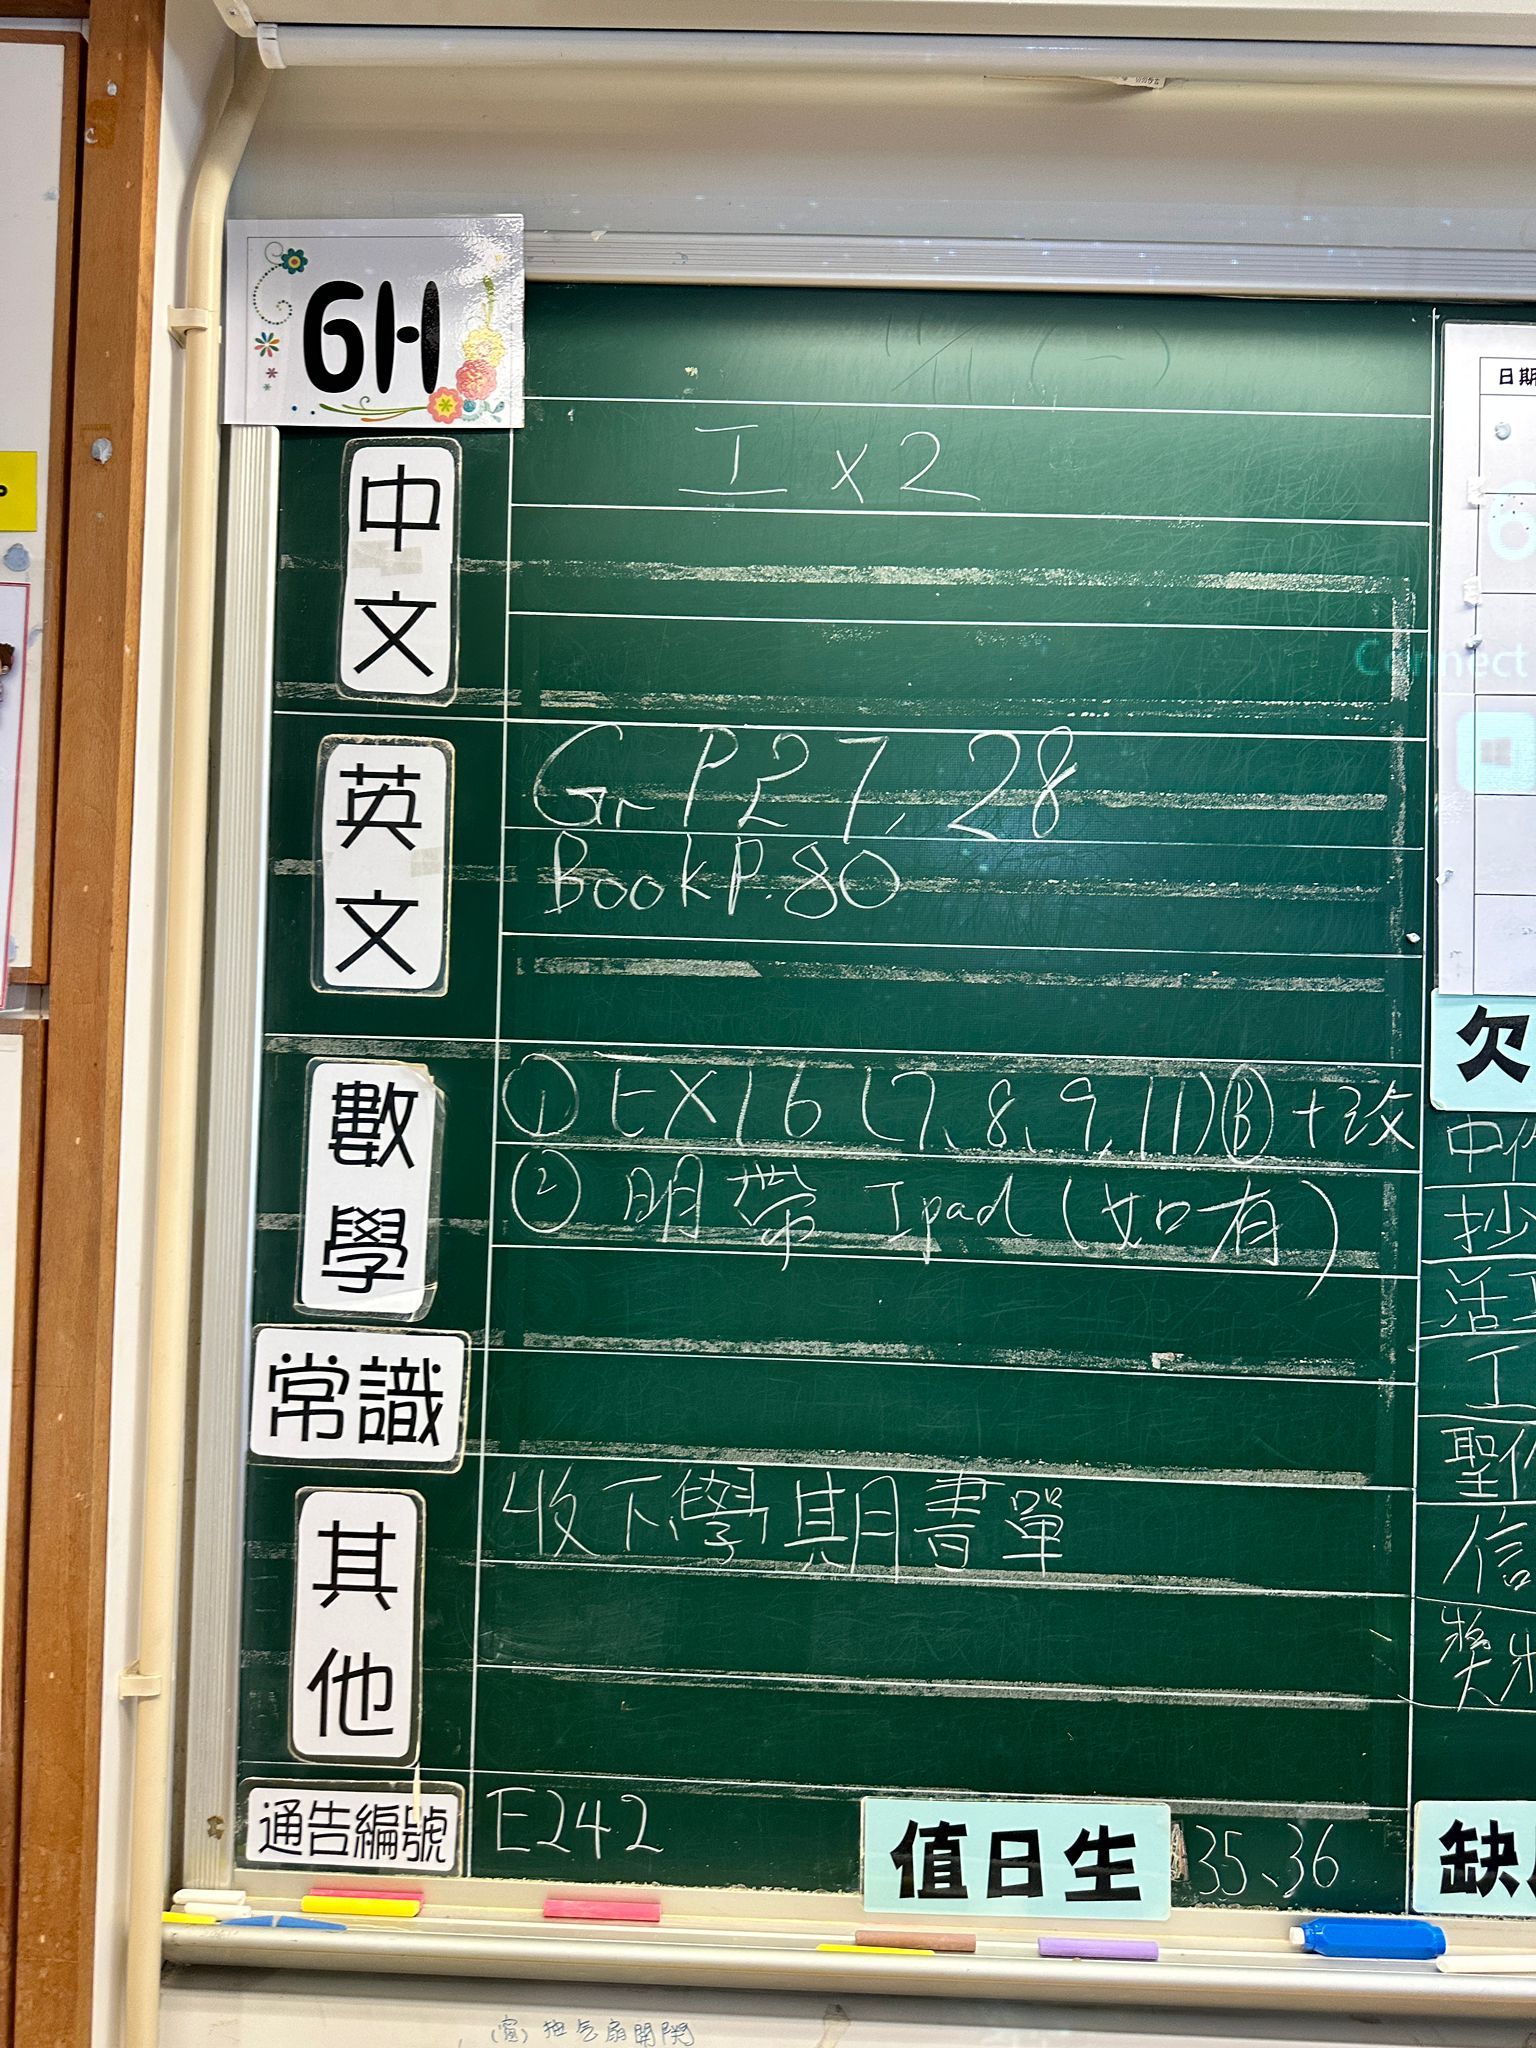 6H
11/1 (一)
中文
工 x 2
英文
Gr P27, 28
Book P.80
數學
① EX16 (7、8、9、11) Ⓑ + 改
② 明帶 Ipad (如有)
常識
其他
收下學期書單
通告編號
E242
值日生
35、36
日期
Connect
欠
抄
活
工
聖
信
獎
缺
抽气扇開關